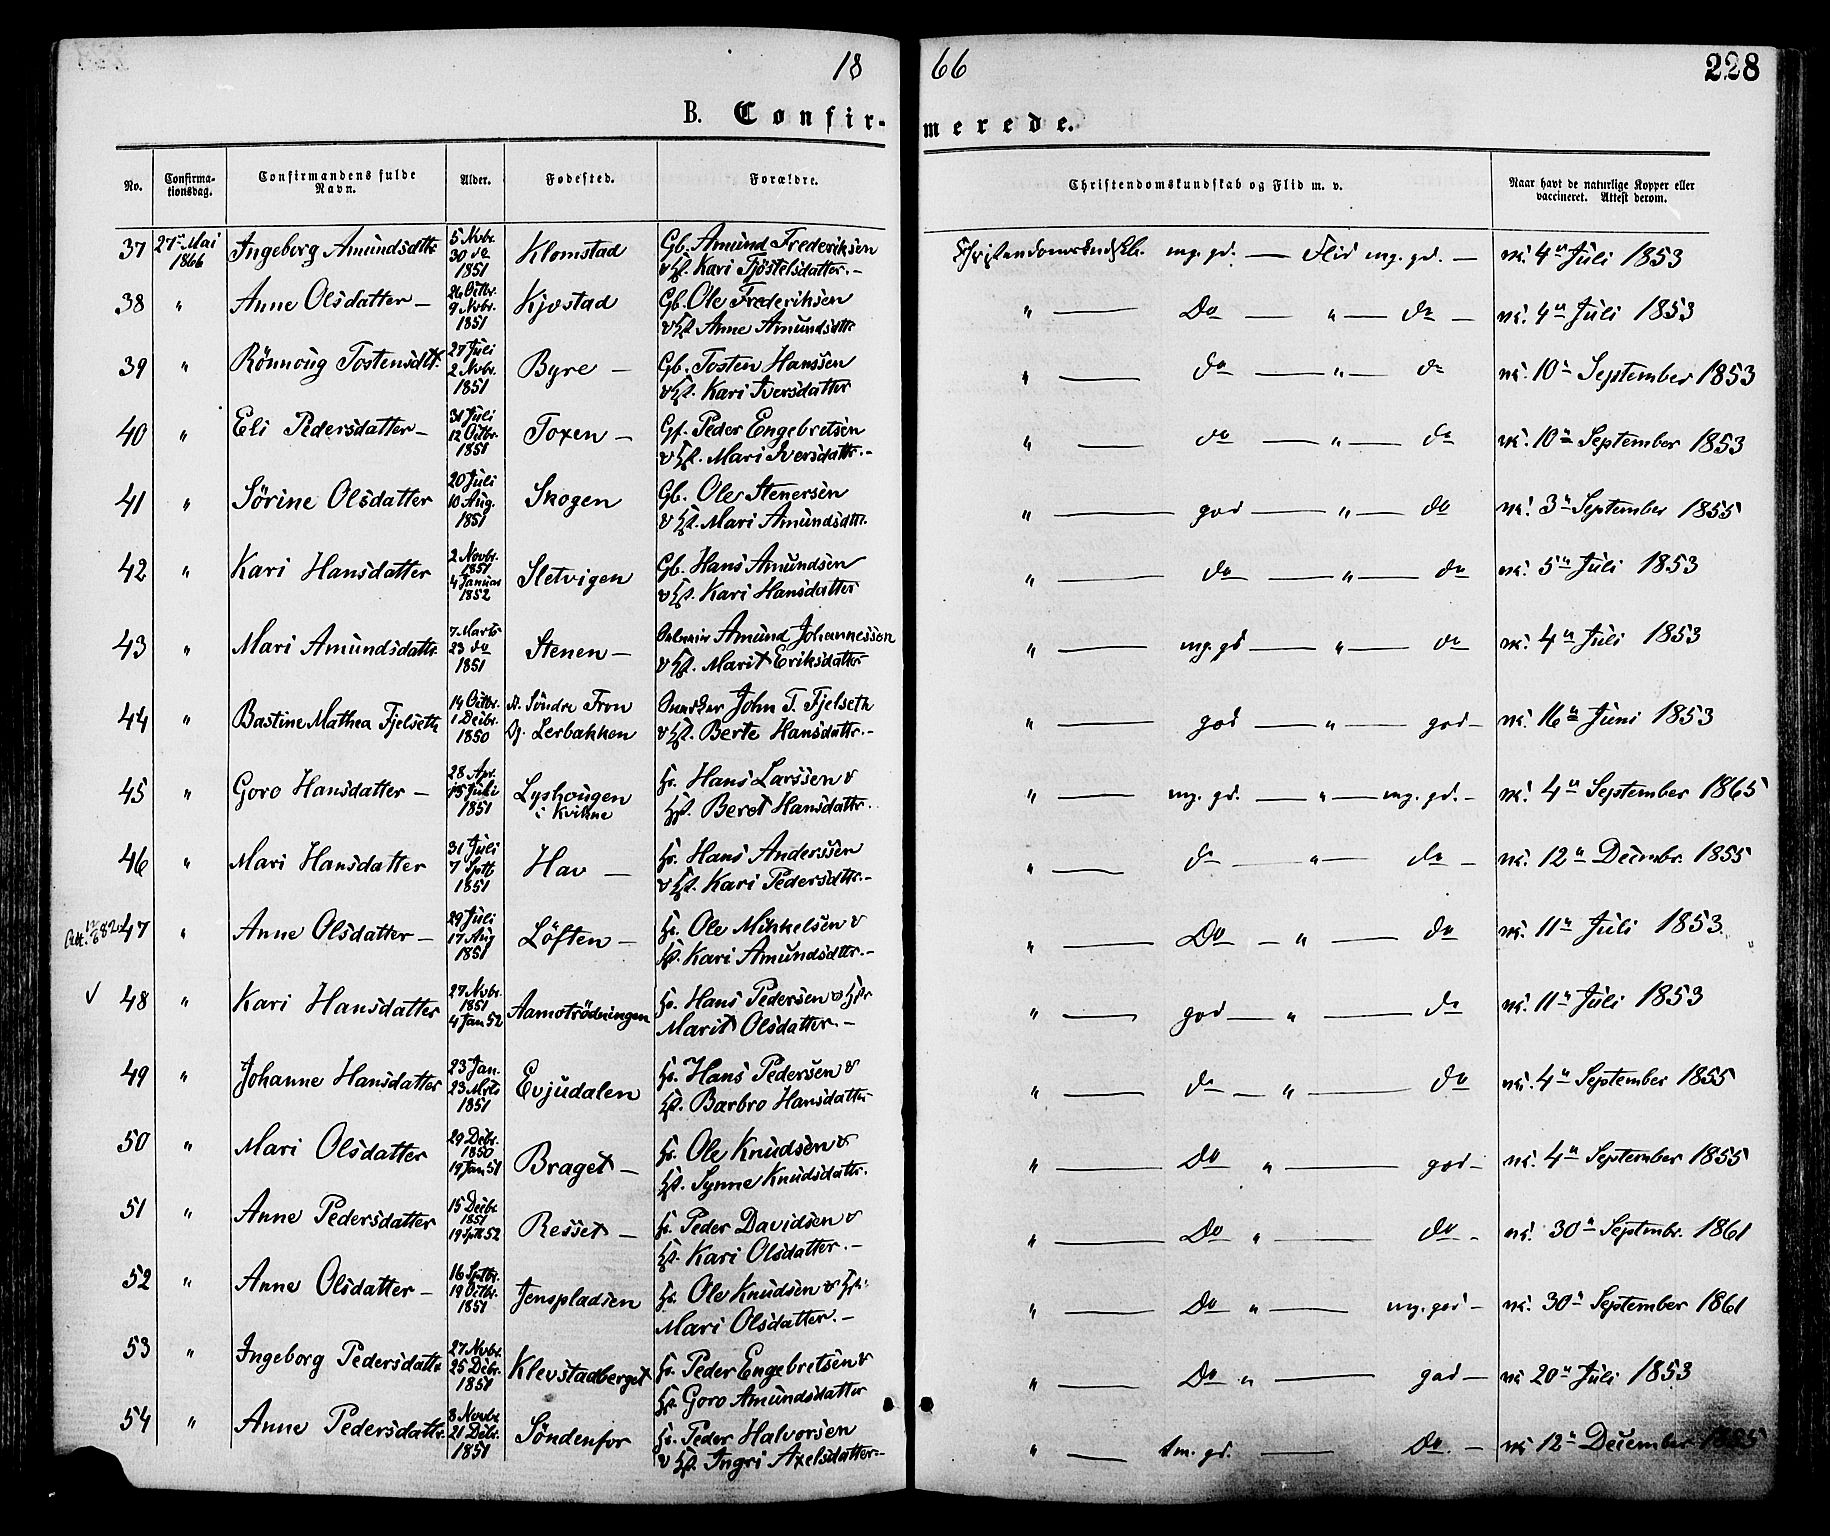 18 66 228
B. Confir- merede.
No. Confirma-tionsdag. Confirmandens fulde Navn. Alder. Fødested. Forældre. Christendomskundskab og Flid m. v. Naar havt de naturlige Kopper eller vaccineret. Attest derom.
37 27de Mai 1866 Ingeborg Amundsdttr 5 Novbr. 30 do 1851 Klomstad Gb. Amund Frederiksen v Hst. Kari Fjöstelsdatter.- Christendomskndskb. mg. gd. — Flid mg. gd. — vc. 4de Juli 1853
38 " Anne Olsdatter — 26 Octbr. 9 Novbr. 1851 Kjostad Gb. Ole Frederiksen v Hst. Anne Amundsdttr " — Do — " — do — vc. 4de Juli 1853
39 " Rönnoug Tostensdtt. 27 Juli 2 Novbr. 1851 Byre — Gb. Tosten Hanssen v Hst. Kari Iversdatter " — do — " — do vc. 10de September 1853
40 " Eli Pedersdatter — 31 Juli 12 Octbr. 1851 Toxen — Gf. Peder Engebretsen v Hst. Mari Iversdattr.- " — do — " — do vc. 10de September 1853
41 " Sörine Olsdatter 20 Juli 10 Aug. 1851 Skogen Gb. Ole Stenersen v Hst. Mari Amundsdttr. " — god — " — do vc. 3de September 1855
42 " Kari Hansdatter 2 Novbr. 1851 4 Januar 1852 Sletvigen Gb. Hans Amundsen v Hst. Kari Hansdatter " — do — " — do vc. 5te Juli 1853
43 " Mari Amundsdattr. 7 Marts 23 do 1851 Stenen — Amund Johannessen v Hst. Marit Eriksdatter " — mg. gd — " — do vc. 4de Juli 1853
44 " Bastine Mathea Fjelseth 14 Octbr. 1 Decbr. 1850 Söndre Fron Lerbakken John T. Fjelseth v Hst. Berte Hansdattr.- " — god — " — god — vc. 16de Juni 1853
45 " Goro Hansdatter — 28 Apr. 15 Juli 1851 Lyshougen i Kvikne Hs. Hans Larssen v Hst. Beret Hansdattr. " — mg. gd. — " — mg. gd. — vc. 4de September 1865
46 " Mari Hansdatter 31 Juli 7 Sptb 1851 Hav — Hs. Hans Anderssen v Hst. Kari Pedersdttr.- " — do — " — do — vc. 12te Decembr. 1855
Att. 12/6 82. 47 " Anne Olsdatter — 29 Juli 17 Aug 1851 Löften — Hs. Ole Mikkelsen v Hst. Kari Amundsdttr.- " — Do — " — do vc. 11te Juli 1853.
√ 48 " Kari Hansdatter 27 Novbr. 1851 4 Jan 52 Aamotrödningen Hs. Hans Pedersen v Hst. Marit Olsdatter.- " — god — " — do vc. 11te Juli 1853
49 " Johanne Hansdatter 23 Jan. 23 Mrts 1851 Evjudalen Hs. Hans Pedersen v Hst. Barbro Hansdatter " — do — " — do vc. 4de September 1855
50 " Mari Olsdatter 29 Debr. 1850 19 Jan. 51 Braget — Hs. Ole Knudsen v Hst. Synne Knudsdattr. " — Do " — god — vc. 4de September 1855
51 " Anne Pedersdatter 15 Decbr. 1851 19 Sptb 52 Resset — Hs. Peder Davidsen v Hst. Kari Olsdatter.- " — Do " — do - vc. 30te Septembr. 1861
52 " Anne Olsdatter — 16 Sptbr. 19 Octbr. 1851 Jenspladsen Hs. Ole Knudsen v Hst. Mari Olsdatter.- " — Do " — mg. god — vc. 30te September 1861
53 " Ingeborg Pedersdattr. 27 Novbr. 25 Debr. 1851 Klevstadberget Hs. Peder Engebretsen v Hst. Goro Amundsdatter " — Do " — god — vc 20de Juli 1853
54 " Anne Pedersdattr. 8 Novbr. 21 Debr. 1851 Söndenfor Hs. Peder Halvorsen v Hst. Ingri Axelsdatter.- " — tm. gd. — Do. — vc 12te December